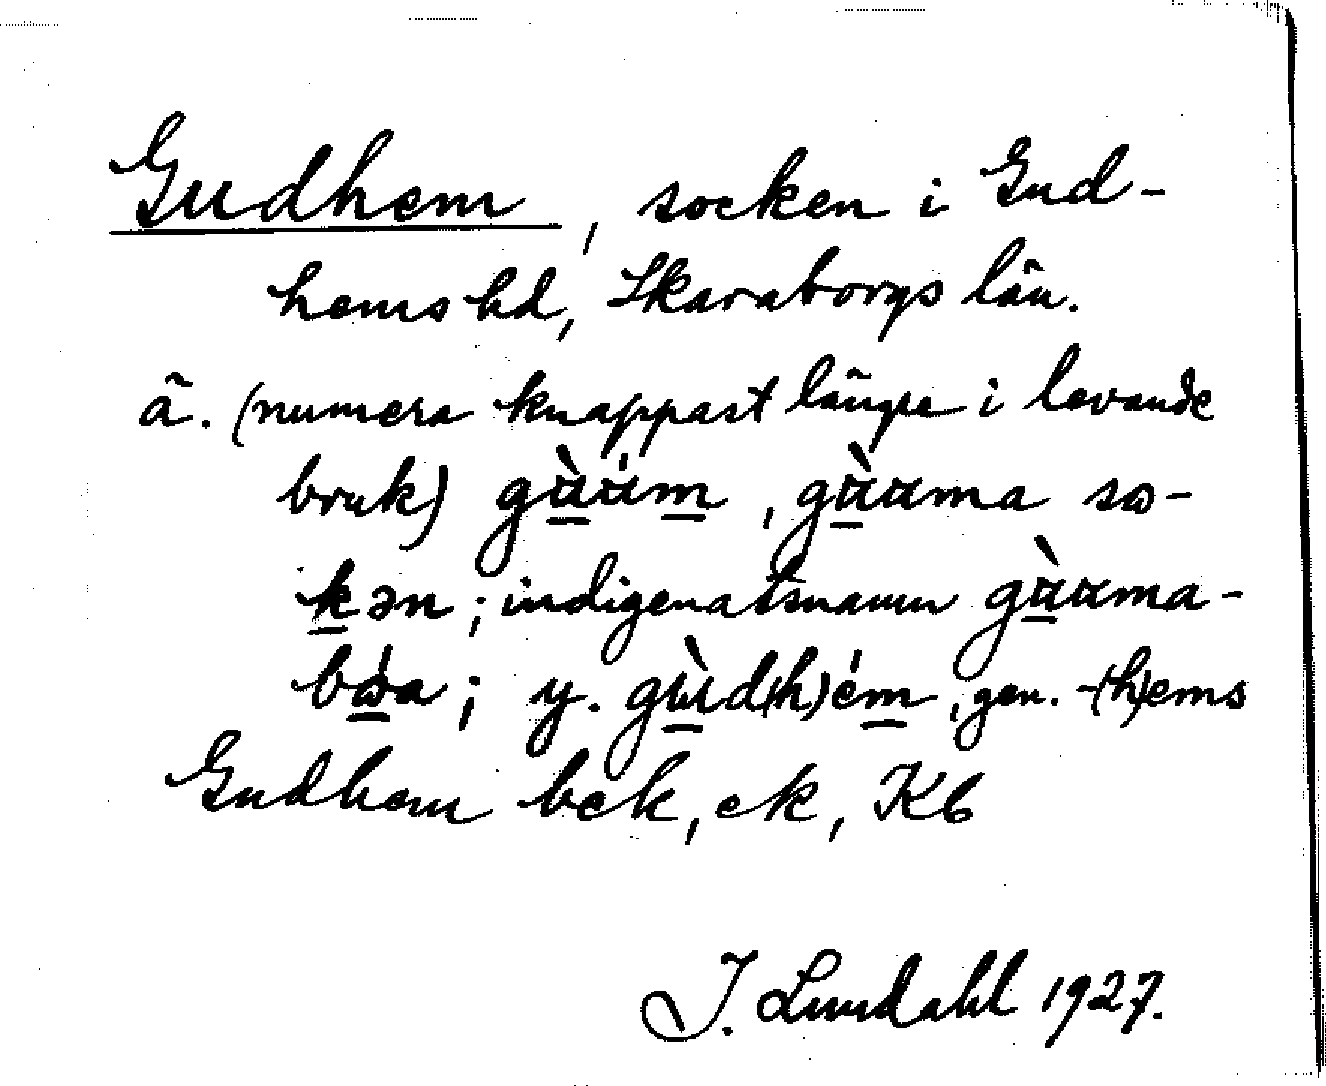 Gudhem, socken i Gud-
hems hd, Skaraborgs län.
ä. (numera knappast längre i levande
bruk) gɑ̀ɑ́m, gɑ̀ɑma so-
kən; indigenatsnamn gɑ̀ɑma-
; y. gùd(h)ém, gen. -(h)ems
Gudhem bek, ek, Kb
J. Lundahl 1927.